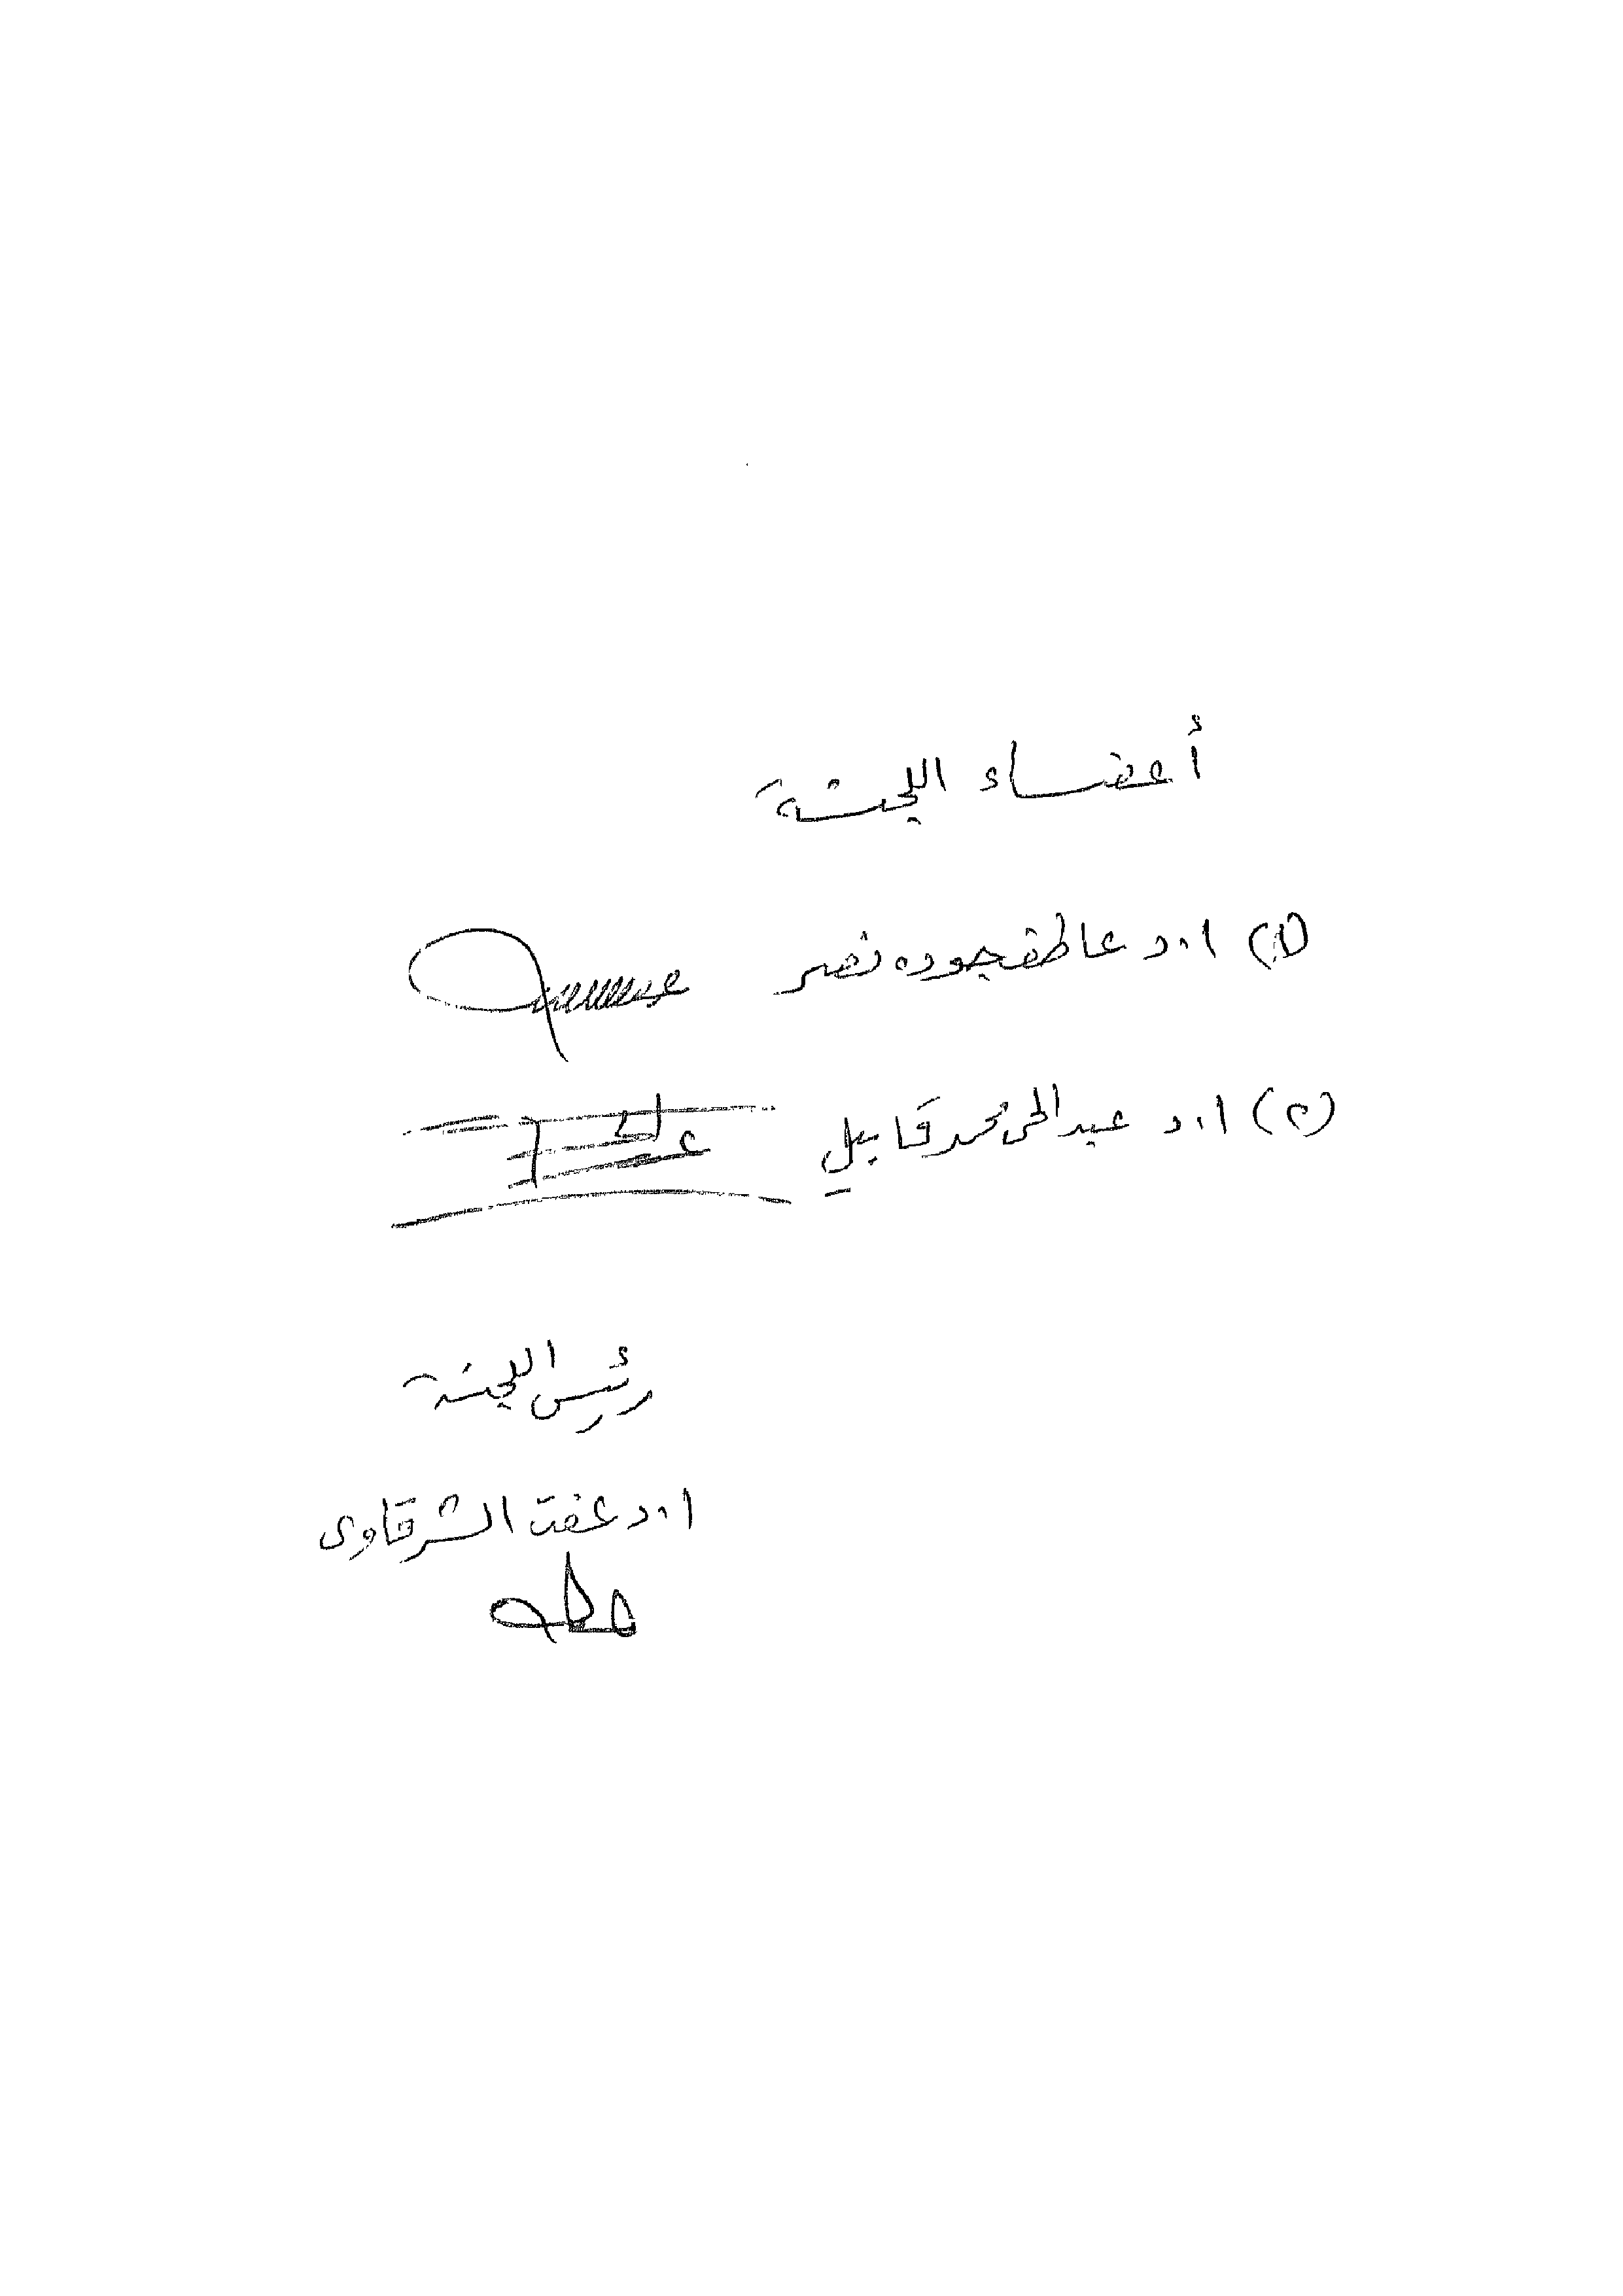 أعضاء اللجنة
(١) ا.د عاطف جوده نصر
(٢) ا.د عبد الحى محمد قابيل
رئيس اللجنة
ا.د عفت الشرقاوى